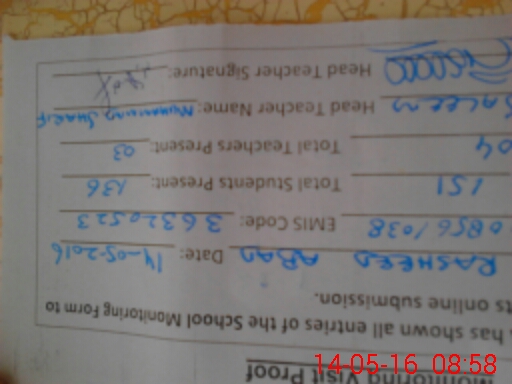 onitoring Visit Proof
has shown all entries of the School Monitoring Form to
ts online submission.
RASHEED ABAD Date: 14-05-2016
08561038 EMIS Code: 36320523
151 Total Students Present: 136
04 Total Teachers Present: 03
SALEEM Head Teacher Name: MUHAMMAD SHARIF
Head Teacher Signature:
14-05-16 08:58